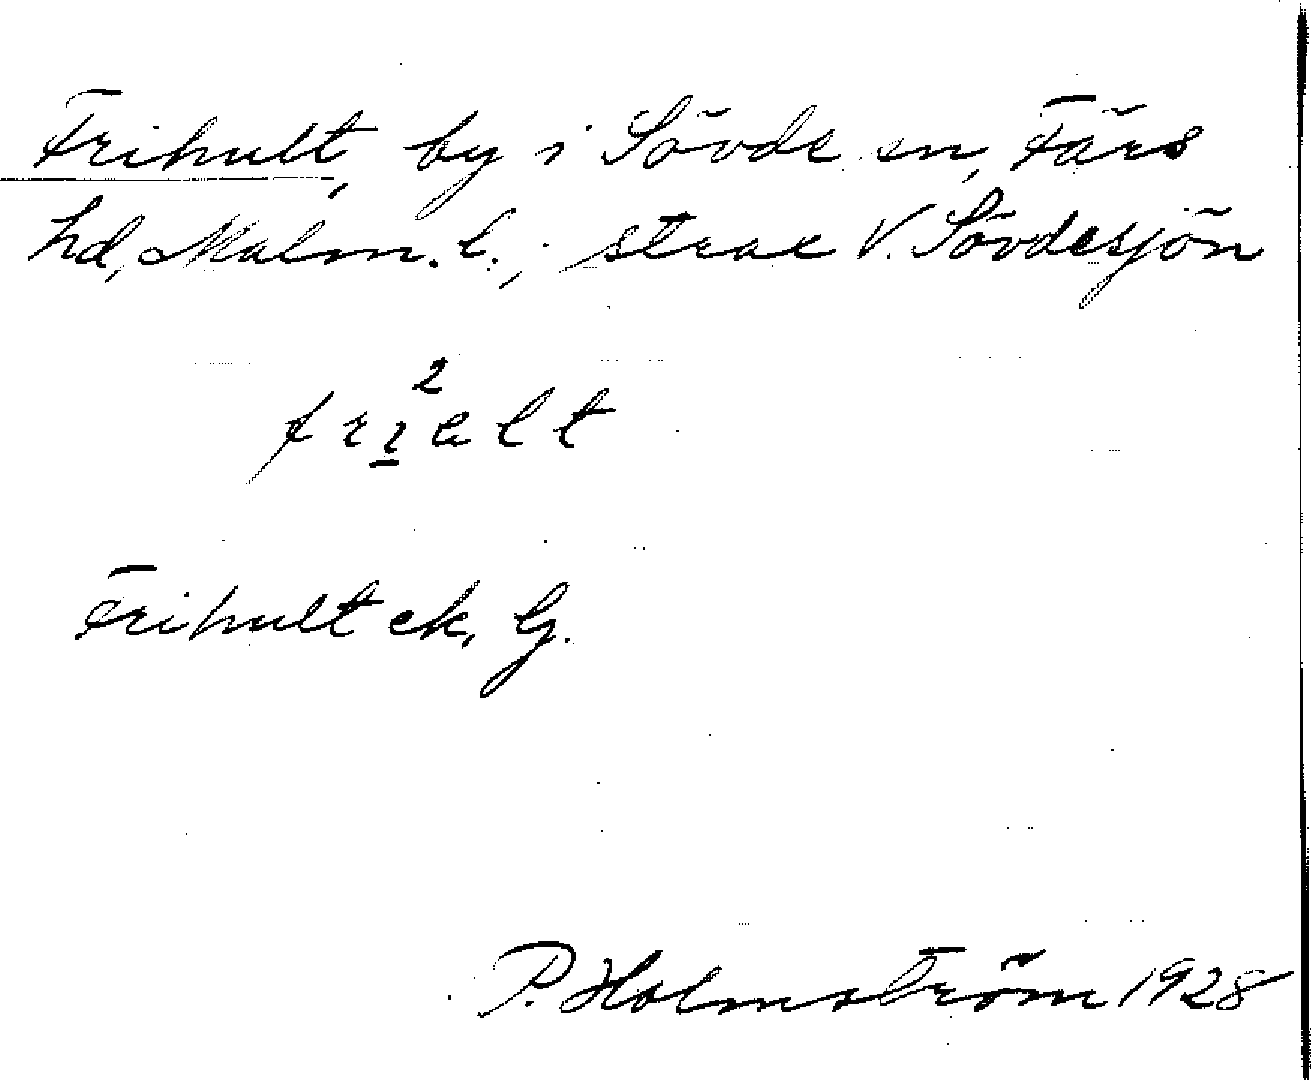 Frihult, by i Sövde sn, Färs
hd, Malm. l.; strax V. Sövdesjön
Frihult ek, G.
P. Holmström 1928